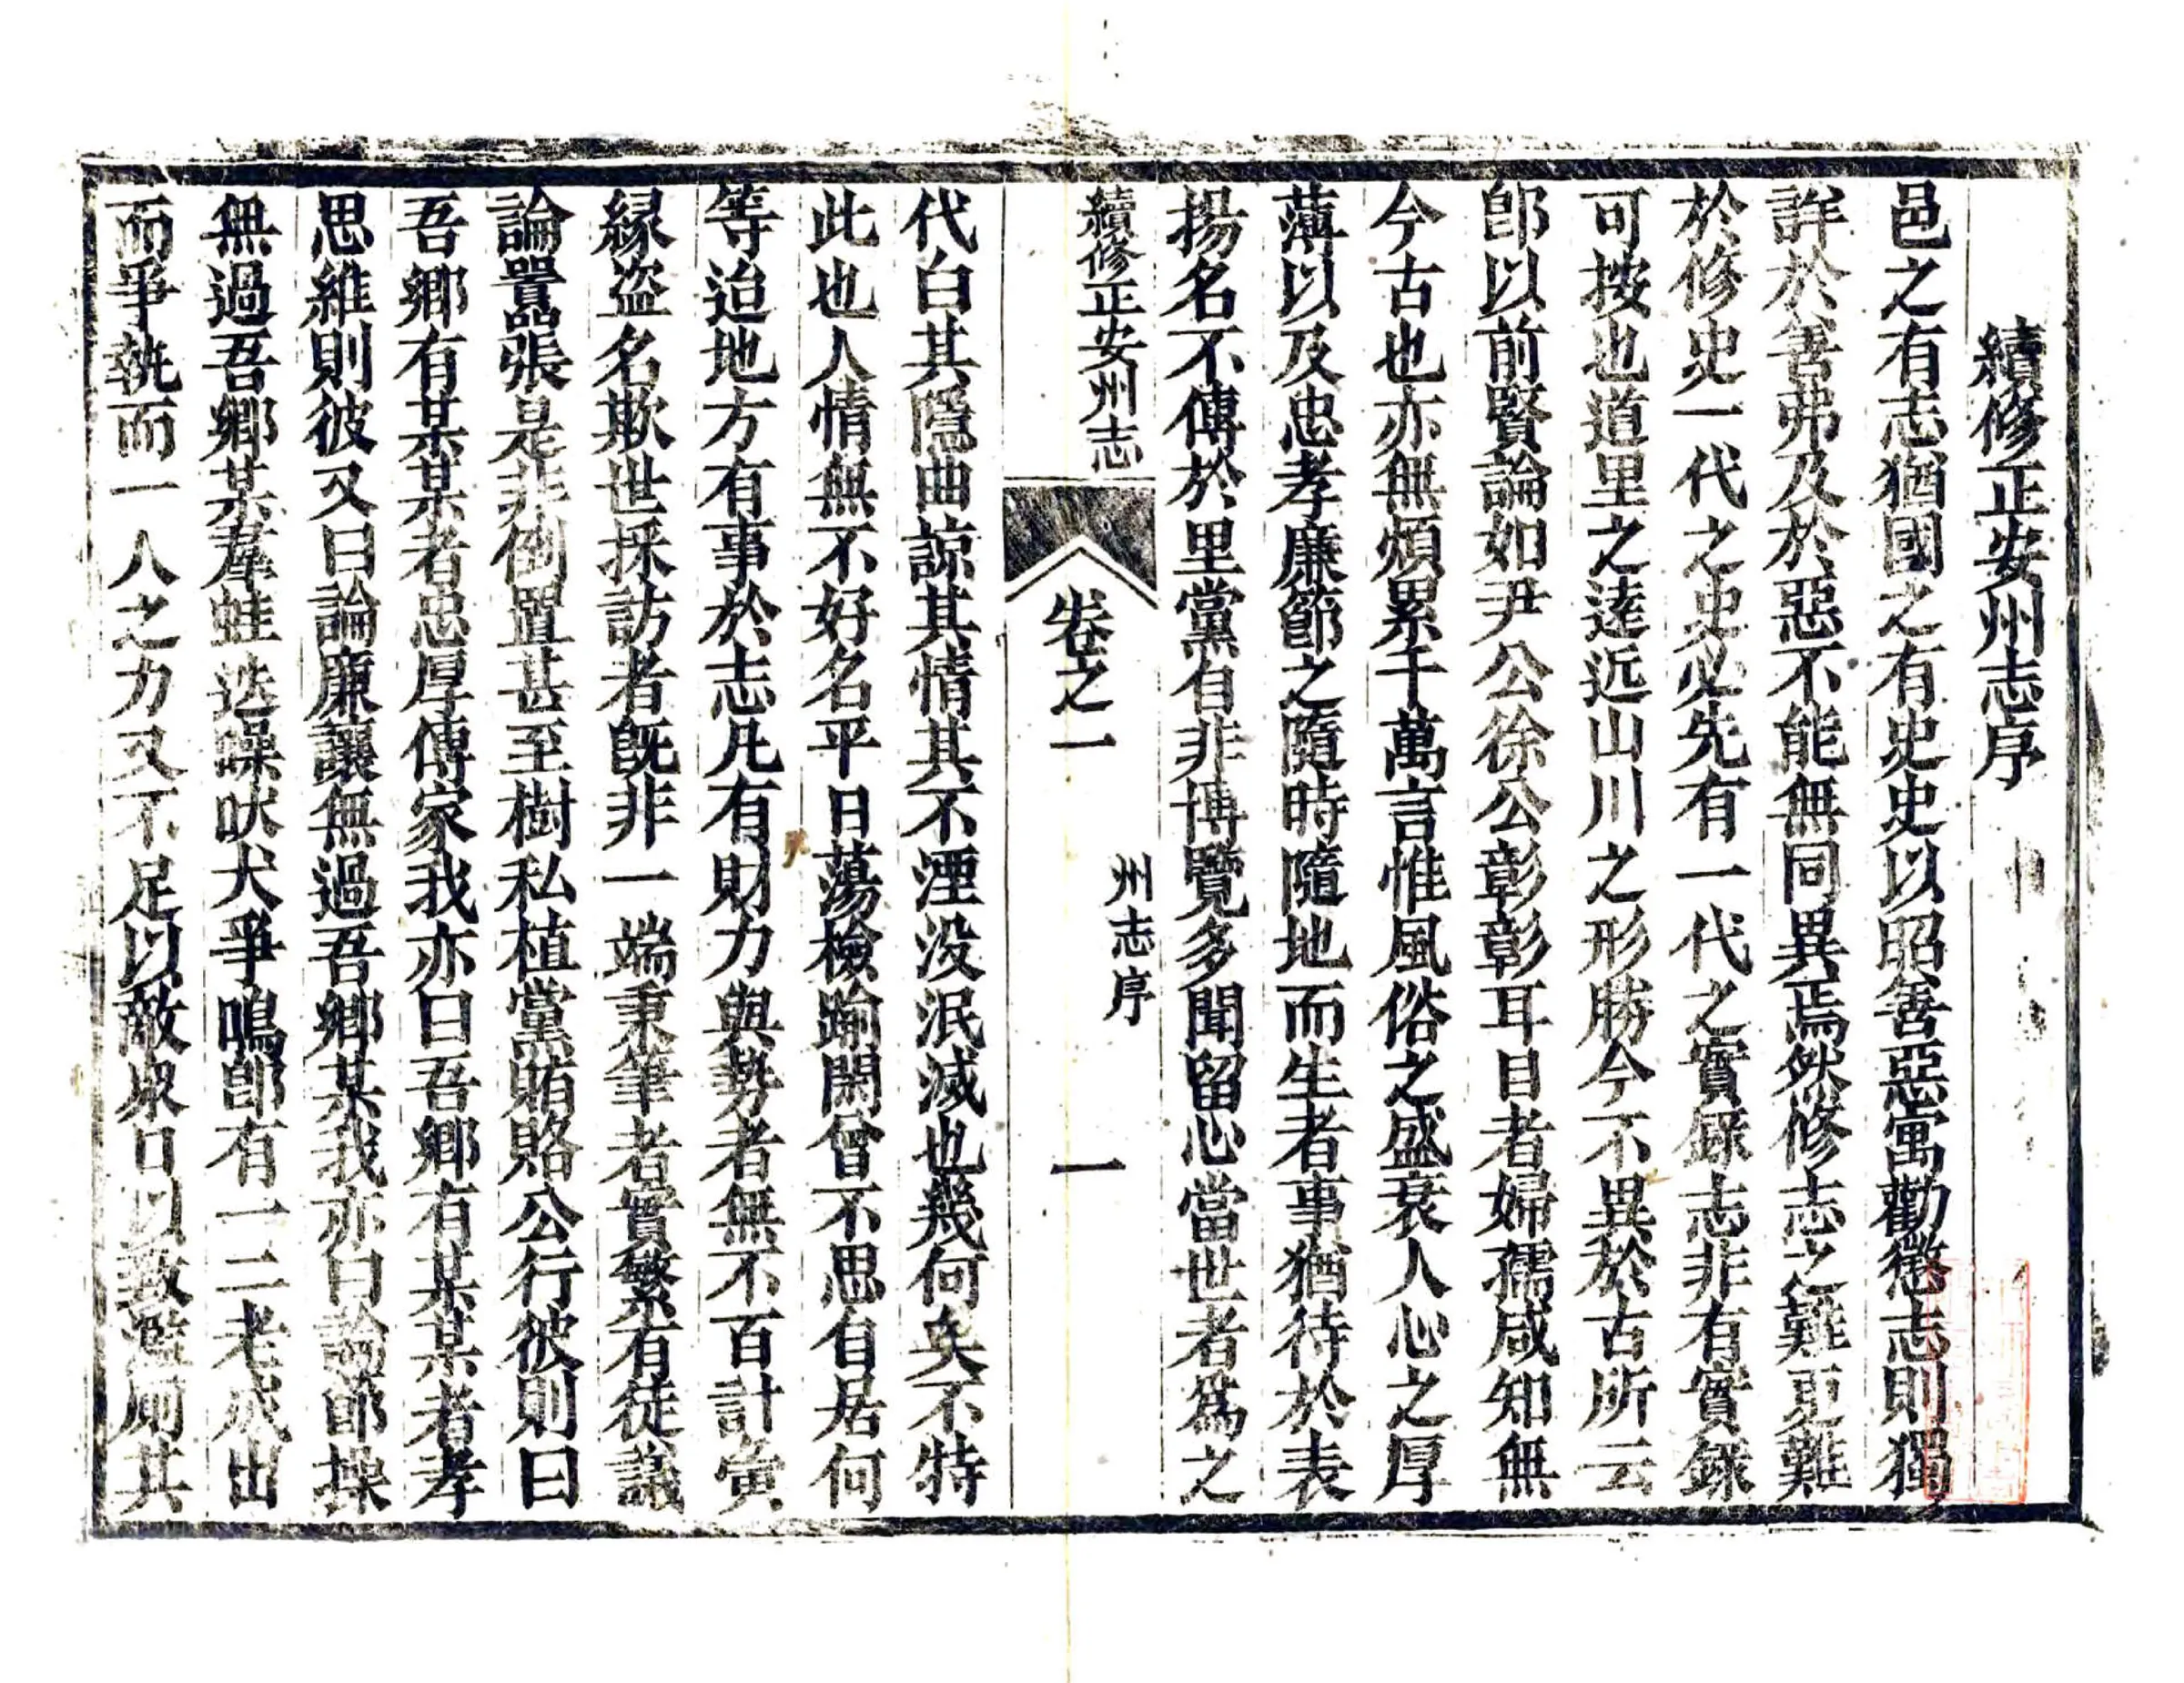 續修正安州志序
邑之有志猶國之有史史以昭善惡寓勸懲志則獨
詳於善弗及於惡不能無同異焉然修志之難更難
於修史一代之史必先有一代之實錄志非有實錄
可按也道里之逺近山川之形勝今不異於古所云
卽以前賢論如尹公徐公彰彰耳目者婦孺咸知無
今古也亦無煩累千萬言惟風俗之盛衰人心之厚
薄以及忠孝廉節之隨時隨地而生者事猶待於表
揚名不傳於里黨自非博覽多聞留心當世者爲之
續修正安州志
卷之一
州志序
一
代白其隱曲諒其情其不湮沒泯滅也幾何矣不特
此也人情無不好名平日蕩檢踰閑曾不思自居何
等迨地方有事於志凡有財力與勢者無不百計夤
緣盜名欺世採訪者旣非一端秉筆者實繁有徒議
論囂張是非倒置甚至樹私植黨賄賂公行彼則曰
吾鄉有某某者忠厚傳家我亦曰吾鄉有某某者孝
思維則彼又曰論廉讓無過吾鄉某我亦曰論節操
無過吾鄉某羣蛙迭噪吠犬爭鳴卽有一二老成出
而爭執而一人之力又不足以敵衆口以致濫厠其